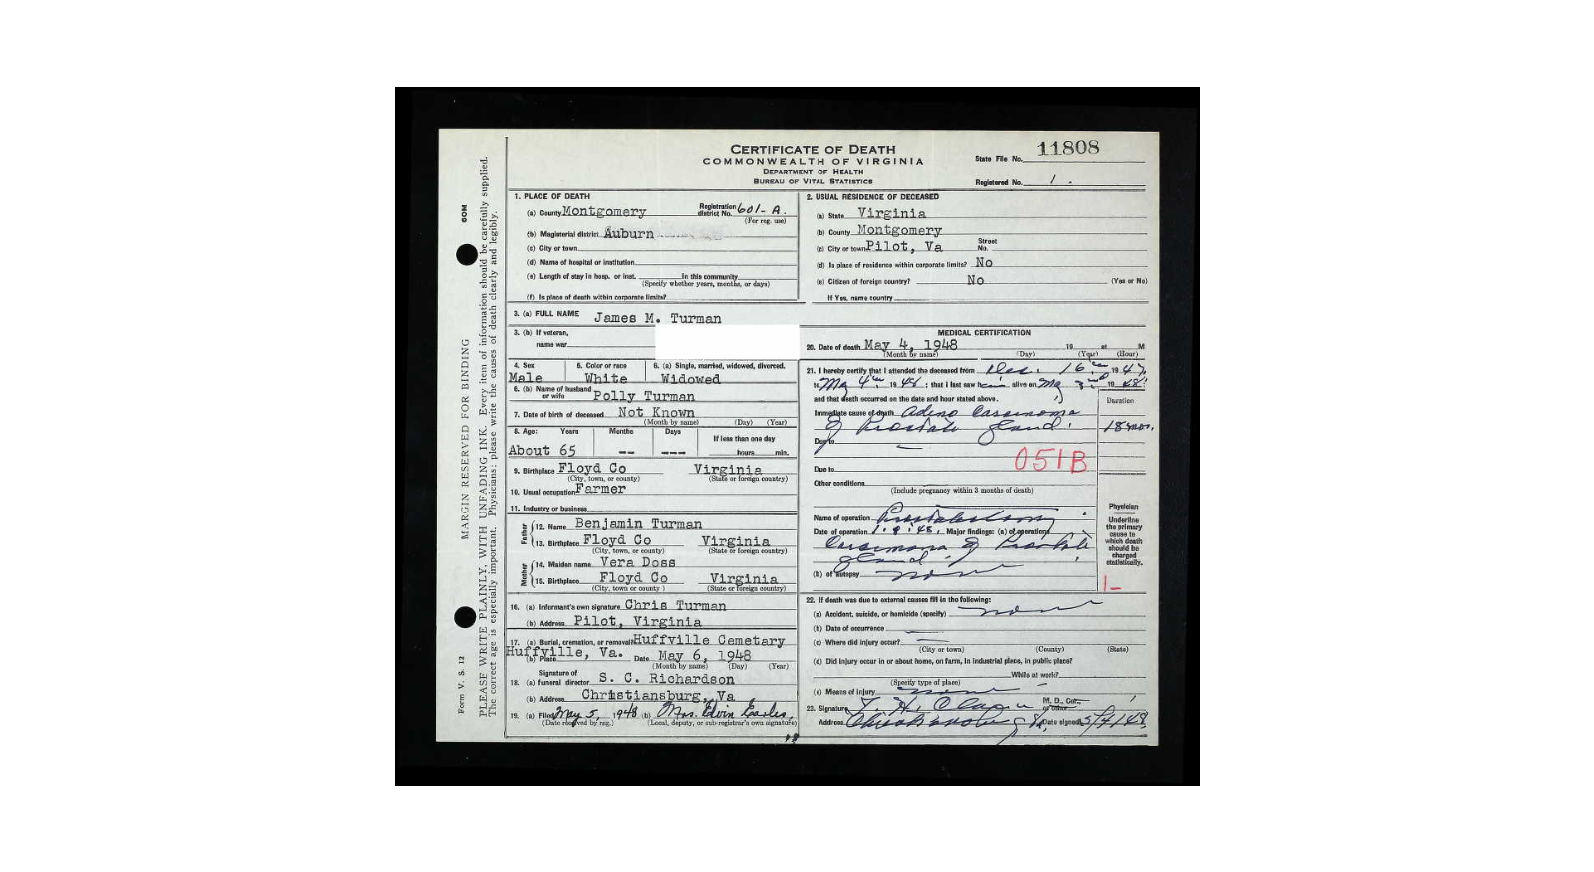 CERTIFICATE OF DEATH
COMMONWEALTH OF VIRGINIA
DEPARTMENT OF HEALTH
BUREAU OF VITAL STATISTICS
State File No. 11808
Registered No. 1.
MARGIN RESERVED FOR BINDING
PLEASE WRITE PLAINLY, WITH UNFADING INK. Every item of information should be carefully supplied.
The correct age is especially important. Physicians: please write the causes of death clearly and legibly.
Form V. S. 12
60M
1. PLACE OF DEATH
(a) County Montgomery Registration district No. 601-A.
(For reg. use)
(b) Magisterial district Auburn
(c) City or town
(d) Name of hospital or institution
(e) Length of stay in hosp. or inst. In this community
(Specify whether years, months, or days)
(f) Is place of death within corporate limits?
2. USUAL RESIDENCE OF DECEASED
(a) State Virginia
(b) County Montgomery
(c) City or town Pilot, Va Street No.
(d) Is place of residence within corporate limits? No
(e) Citizen of foreign country? No (Yes or No)
If Yes, name country
3. (a) FULL NAME James M. Turman
3. (b) If veteran,
name war
4. Sex 5. Color or race 6. (a) Single, married, widowed, divorced.
Male White Widowed
6. (b) Name of husband or wife Polly Turman
7. Date of birth of deceased Not Known
(Month by name) (Day) (Year)
8. Age: Years Months Days If less than one day
About 65 -- --- hours min.
9. Birthplace Floyd Co Virginia
(City, town, or county) (State or foreign country)
10. Usual occupation Farmer
11. Industry or business
Father
12. Name Benjamin Turman
13. Birthplace Floyd Co Virginia
(City, town, or county) (State or foreign country)
Mother
14. Maiden name Vera Doss
15. Birthplace Floyd Co Virginia
(City, town, or county) (State or foreign country)
16. (a) Informant's own signature Chris Turman
(b) Address Pilot, Virginia
17. (a) Burial, cremation, or removal Huffville Cemetary
Huffville, Va.
(b) Place Date May 6, 1948
(Month by name) (Day) (Year)
18. Signature of
(a) funeral director S. C. Richardson
(b) Address Christiansburg, Va
19. (a) Filed May 5, 1948 (b) Mrs. Edvin
(Date received by reg.) (Local, deputy, or sub-registrar's own signature)
MEDICAL CERTIFICATION
20. Date of death May 4, 1948 19 at M
(Month by name) (Day) (Year) (Hour)
21. I hereby certify that I attended the deceased from Dec. 16 1947
to May 4 1948; that I last saw him alive on May 3rd 1948
and that death occurred on the date and hour stated above. Duration
Immediate cause of death Adino Carsinoma
of Prostate gland. 18 mos.
Due to
051B
Due to
Other conditions
(Include pregnancy within 3 months of death)
Name of operation Prostatectomy
Date of operation 1-9-48. Major findings: (a) of operations
Carsinoma of Prostate
gland
(b) of autopsy none
Physician
Underline the primary cause to which death should be charged statistically.
1-
22. If death was due to external causes fill in the following:
(a) Accident, suicide, or homicide (specify) none
(b) Date of occurrence
(c) Where did injury occur?
(City or town) (County) (State)
(d) Did injury occur in or about home, on farm, in industrial place, in public place?
While at work?
(Specify type of place)
(e) Means of injury none
23. Signature M. D., Cor., or other
Address Va. Date signed 5/7/48